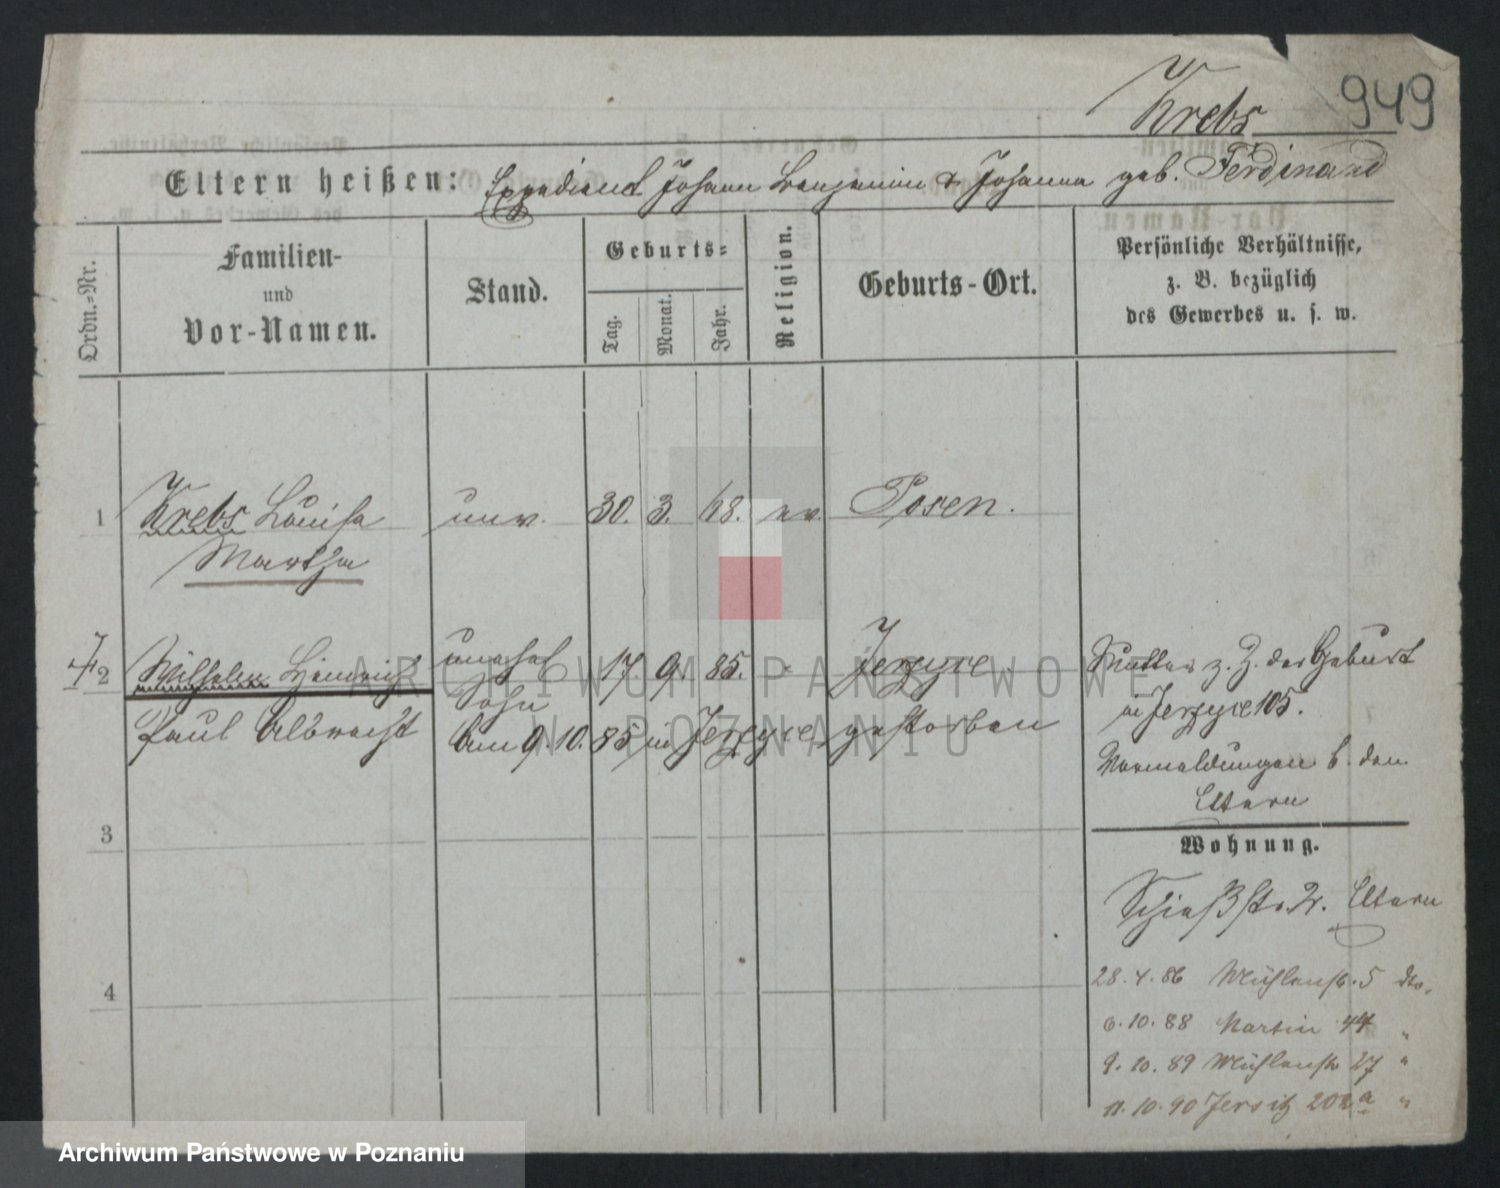 Krebs 949
Eltern heißen: Expedient Johann Benjamin & Johanna geb. Ferdinand
Ordn.=Nr.
Familien-
und
Vor-Namen.
Stand.
Geburts=
Tag.
Monat.
Jahr.
Religion.
Geburts-Ort.
Persönliche Verhältnisse,
z. B. bezüglich
des Gewerbes u. s. w.
1 Krebs Louisa unv. 30. 3. 68. ev. Posen.
Martha
2 Wilhelm Heinrich unehel 17. 9. 85. " Jerzyce
Sohn
Paul Albrecht am 9. 10. 85 in Jerzyce gestorben
Mutter z. Z. der Geburt
in Jerzyce 105.
Vermeldungen b. den
Eltern
3
Wohnung.
Schießstr. 2. Eltern
4
28. 4. 86 Mühlenstr. 5 dto.
6. 10. 88 Martin 44 "
9. 10. 89 Mühlenstr 27 "
11. 10. 90 Jersitz 202a "
ARCHIWUM PAŃSTWOWE
W POZNANIU
Archiwum Państwowe w Poznaniu